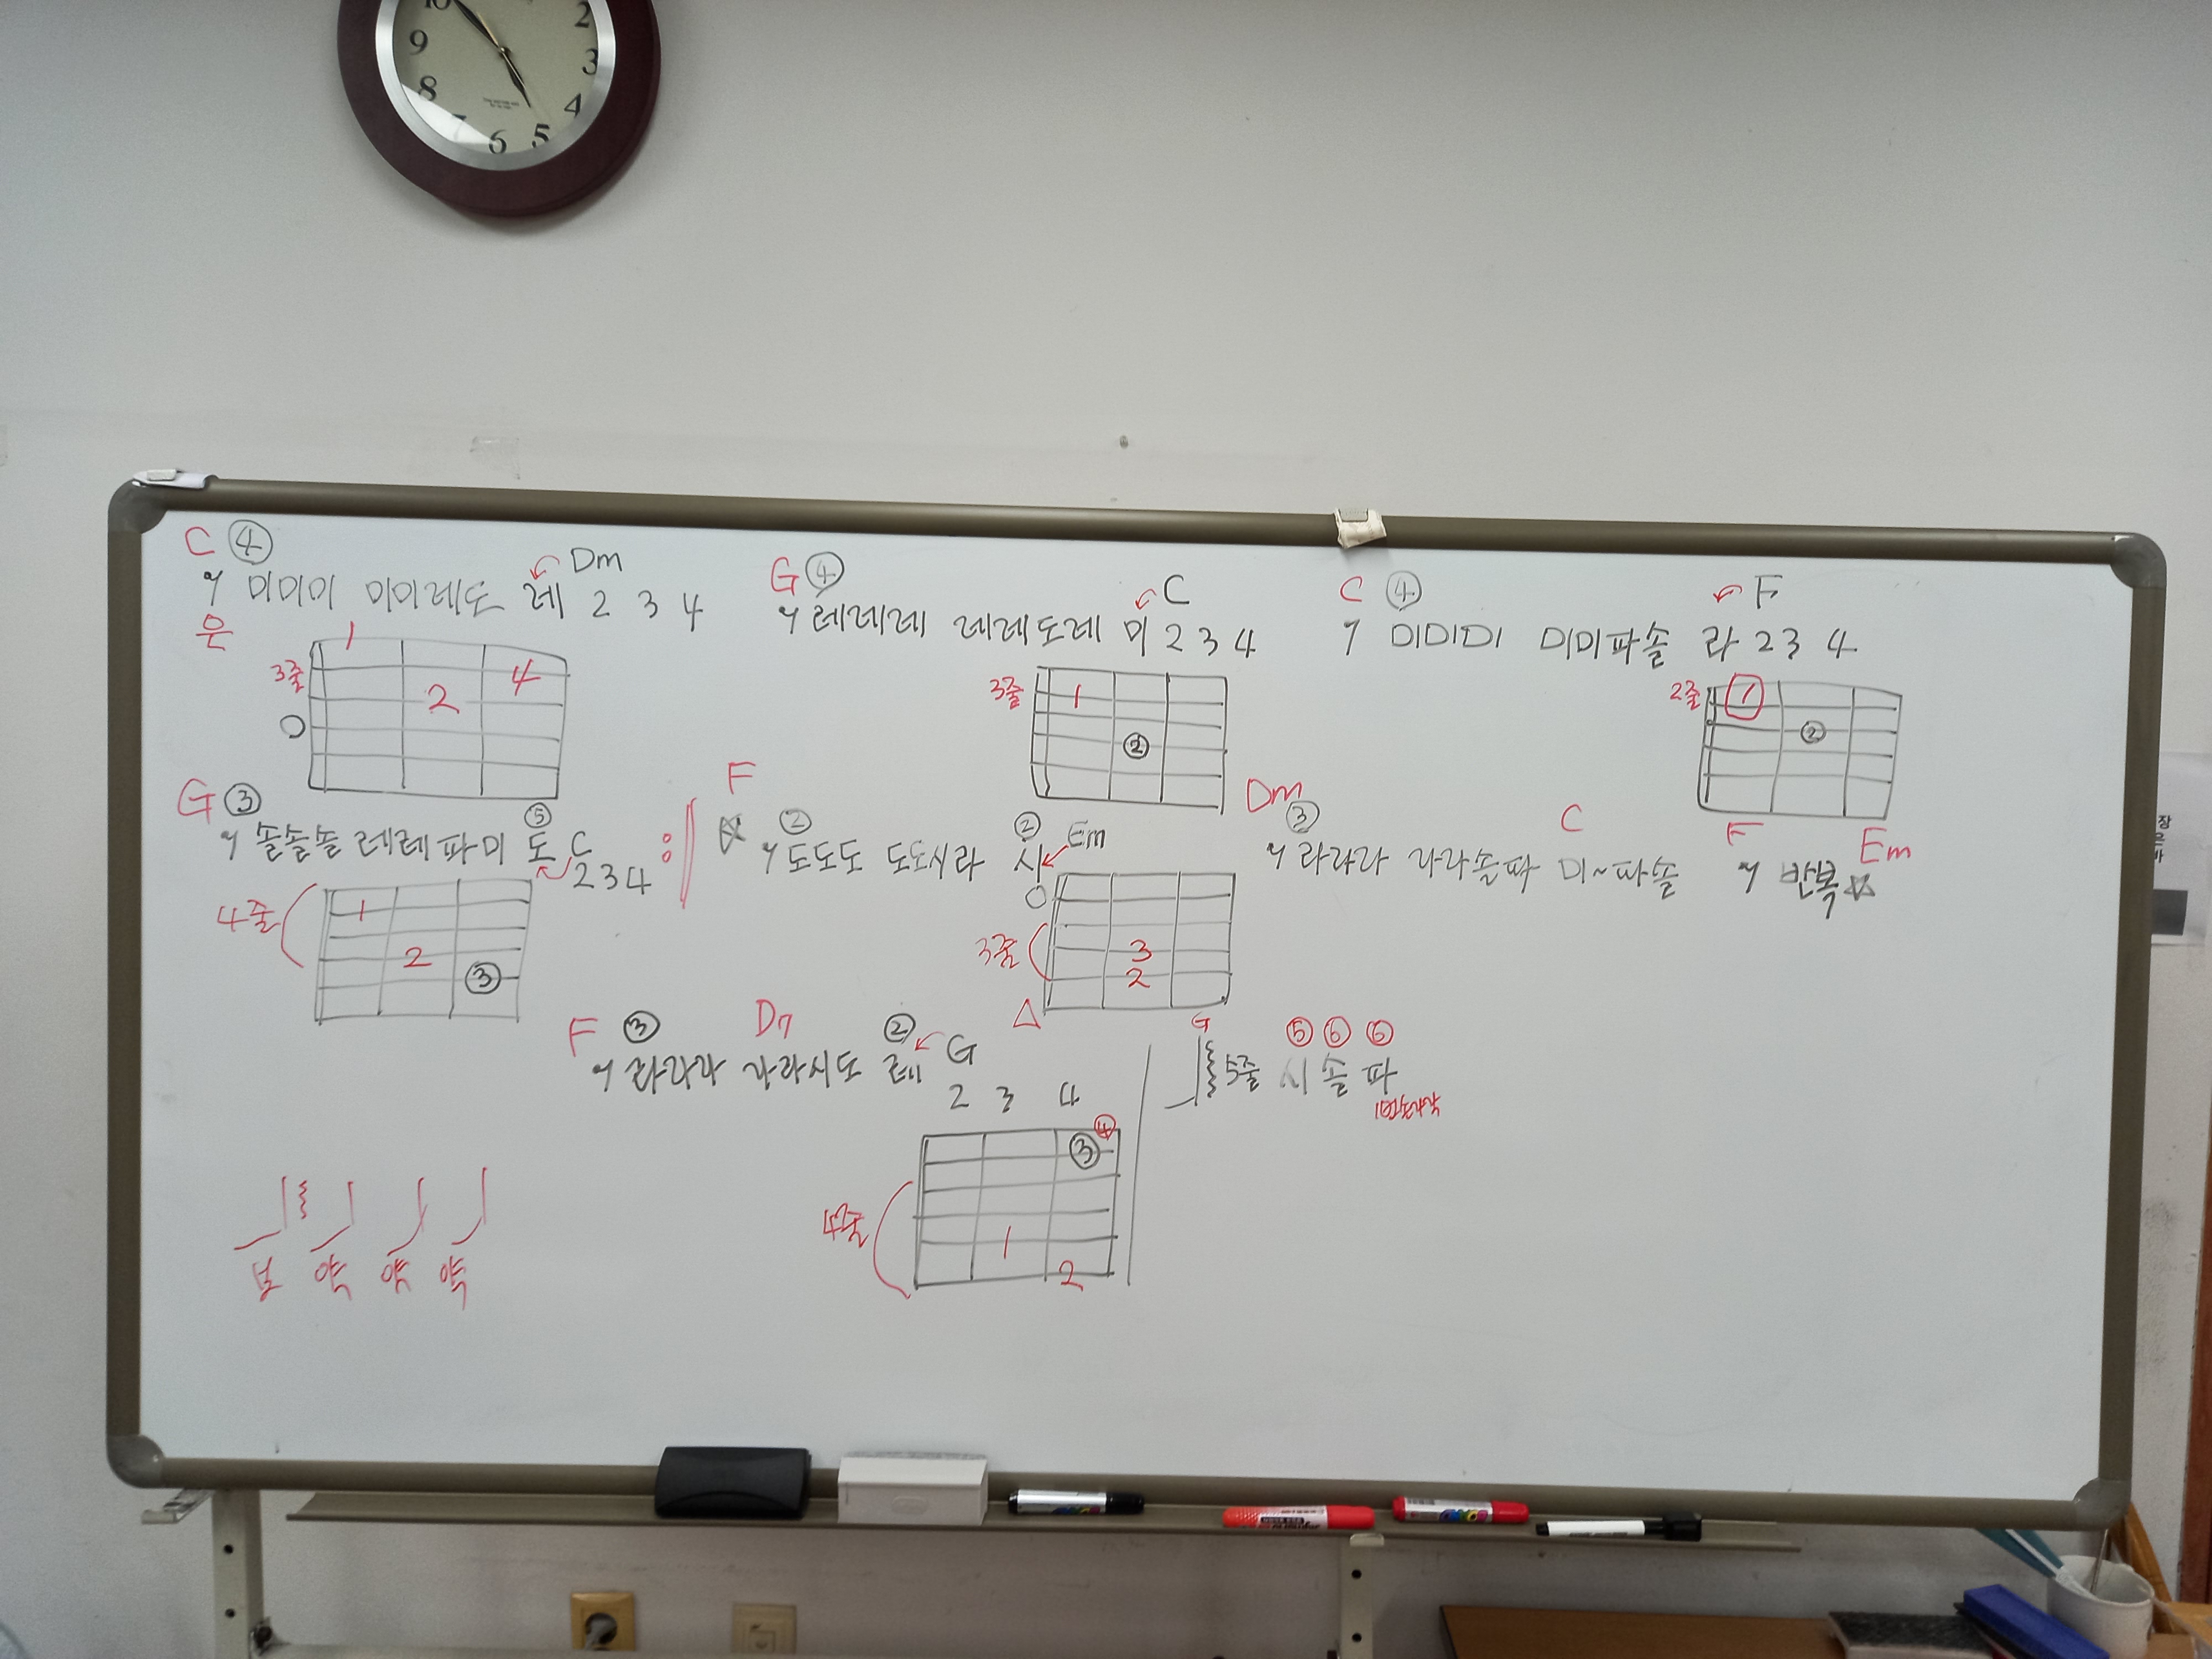 10 2
9 3
8 4
7 6 5
C ④ Dm
미미미 미미레도 레 2 3 4
은
1
3줄 4
2
G ④ C
레레레 레레도레 미 2 3 4
3줄 1
②
C ④ F
미미미 미미파솔 라 2 3 4
2줄 1
②
G ③ ⑤
솔솔솔 레레파미 도 C
2 3 4
4줄 1
2
③
F
☆ ② ② Em
도도도 도도시라 시
3줄 3
2
Dm ③ C
라라라 라라솔파 미~파솔
F Em
반복 ☆
F ③ D7 ② G
라라라 라라시도 레
2 3 4
④
③
4줄
1
2
G ⑤ ⑥ ⑥
5줄 시 솔 파
1번손가락
장
은